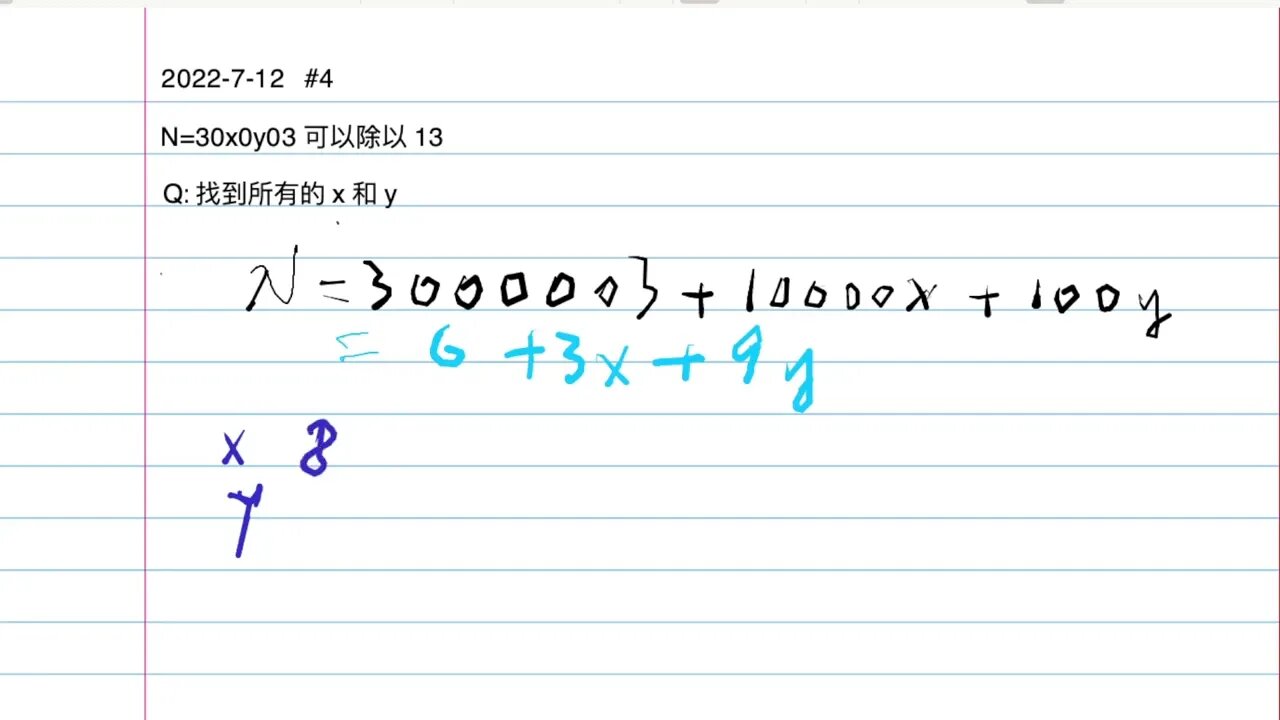 2022-7-12 #4
N=30x0y03 可以除以 13
Q: 找到所有的 x 和 y
N = 3000003 + 10000x + 100y
= 6 + 3x + 9y
x 8
y